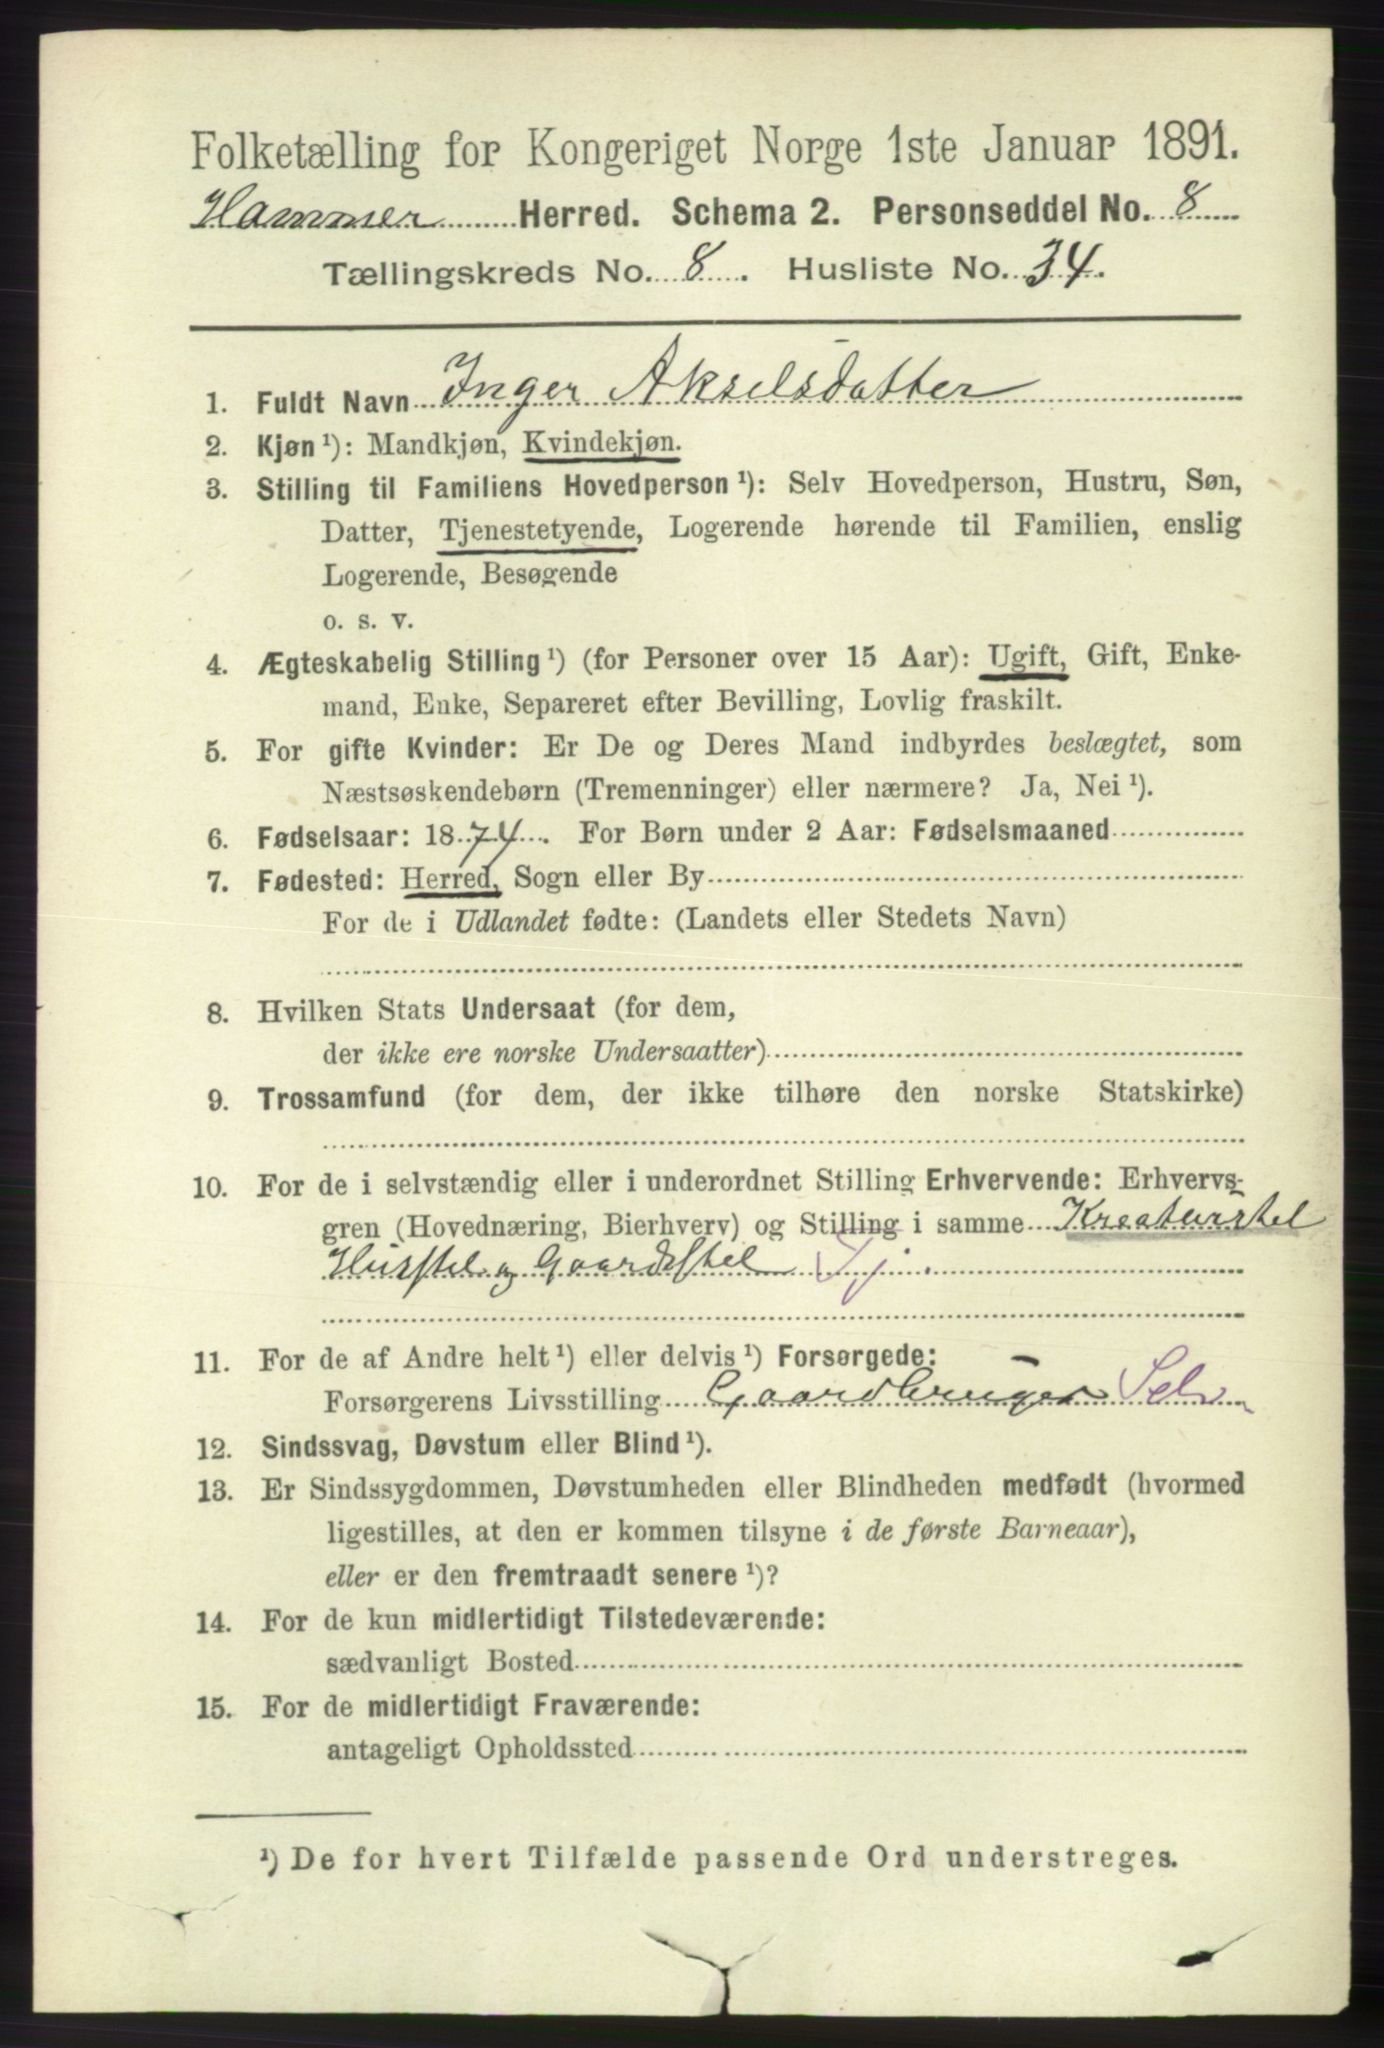 Folketælling for Kongeriget Norge 1ste Januar 1891.
Hammer Herred. Schema 2. Personseddel No. 8
Tællingskreds No. 8. Husliste No. 34.
1. Fuldt Navn Inger Akselsdatter
2. Kjøn ¹): Mandkjøn, Kvindekjøn.
3. Stilling til Familiens Hovedperson ¹): Selv Hovedperson, Hustru, Søn,
Datter, Tjenestetyende, Logerende hørende til Familien, enslig
Logerende, Besøgende
o. s. v.
4. Ægteskabelig Stilling ¹) (for Personer over 15 Aar): Ugift, Gift, Enke-
mand, Enke, Separeret efter Bevilling, Lovlig fraskilt.
5. For gifte Kvinder: Er De og Deres Mand indbyrdes beslægtet, som
Næstsøskendebørn (Tremenninger) eller nærmere? Ja, Nei ¹).
6. Fødselsaar: 1874. For Børn under 2 Aar: Fødselsmaaned
7. Fødested: Herred, Sogn eller By
For de i Udlandet fødte: (Landets eller Stedets Navn)
8. Hvilken Stats Undersaat (for dem,
der ikke ere norske Undersaatter)
9. Trossamfund (for dem, der ikke tilhøre den norske Statskirke)
10. For de i selvstændig eller i underordnet Stilling Erhvervende: Erhvervs-
gren (Hovednæring, Bierhverv) og Stilling i samme Kreaturstel
Husstel og Gaardsstel Tj.
11. For de af Andre helt ¹) eller delvis ¹) Forsørgede:
Forsørgerens Livsstilling Gaardbruger Selv
12. Sindssvag, Døvstum eller Blind ¹).
13. Er Sindssygdommen, Døvstumheden eller Blindheden medfødt (hvormed
ligestilles, at den er kommen tilsyne i de første Barneaar),
eller er den fremtraadt senere ¹)?
14. For de kun midlertidigt Tilstedeværende:
sædvanligt Bosted
15. For de midlertidigt Fraværende:
antageligt Opholdssted
¹) De for hvert Tilfælde passende Ord understreges.